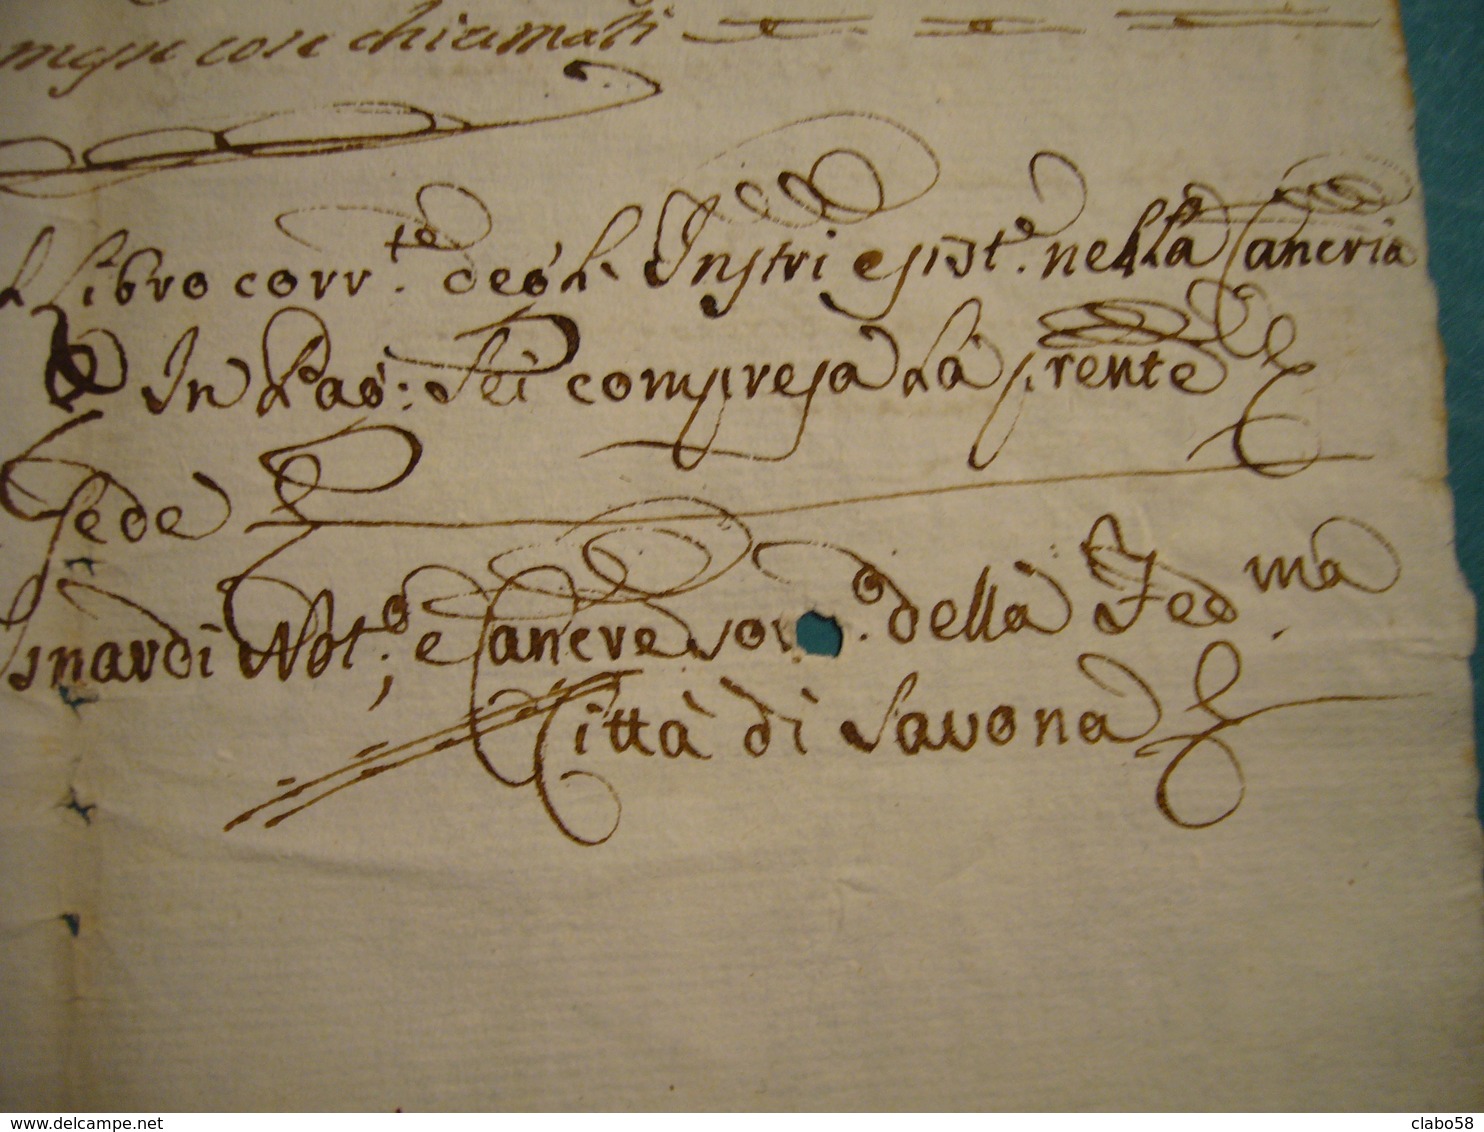 così chiamati
Libro corr.te degl' Instri esist.e nella Cancria
In Pag: Sei compresa la prente
fede
nardi Not.o e Cancre so .o della Med ma
Città di Savona
www.delcampe.net
clabo58